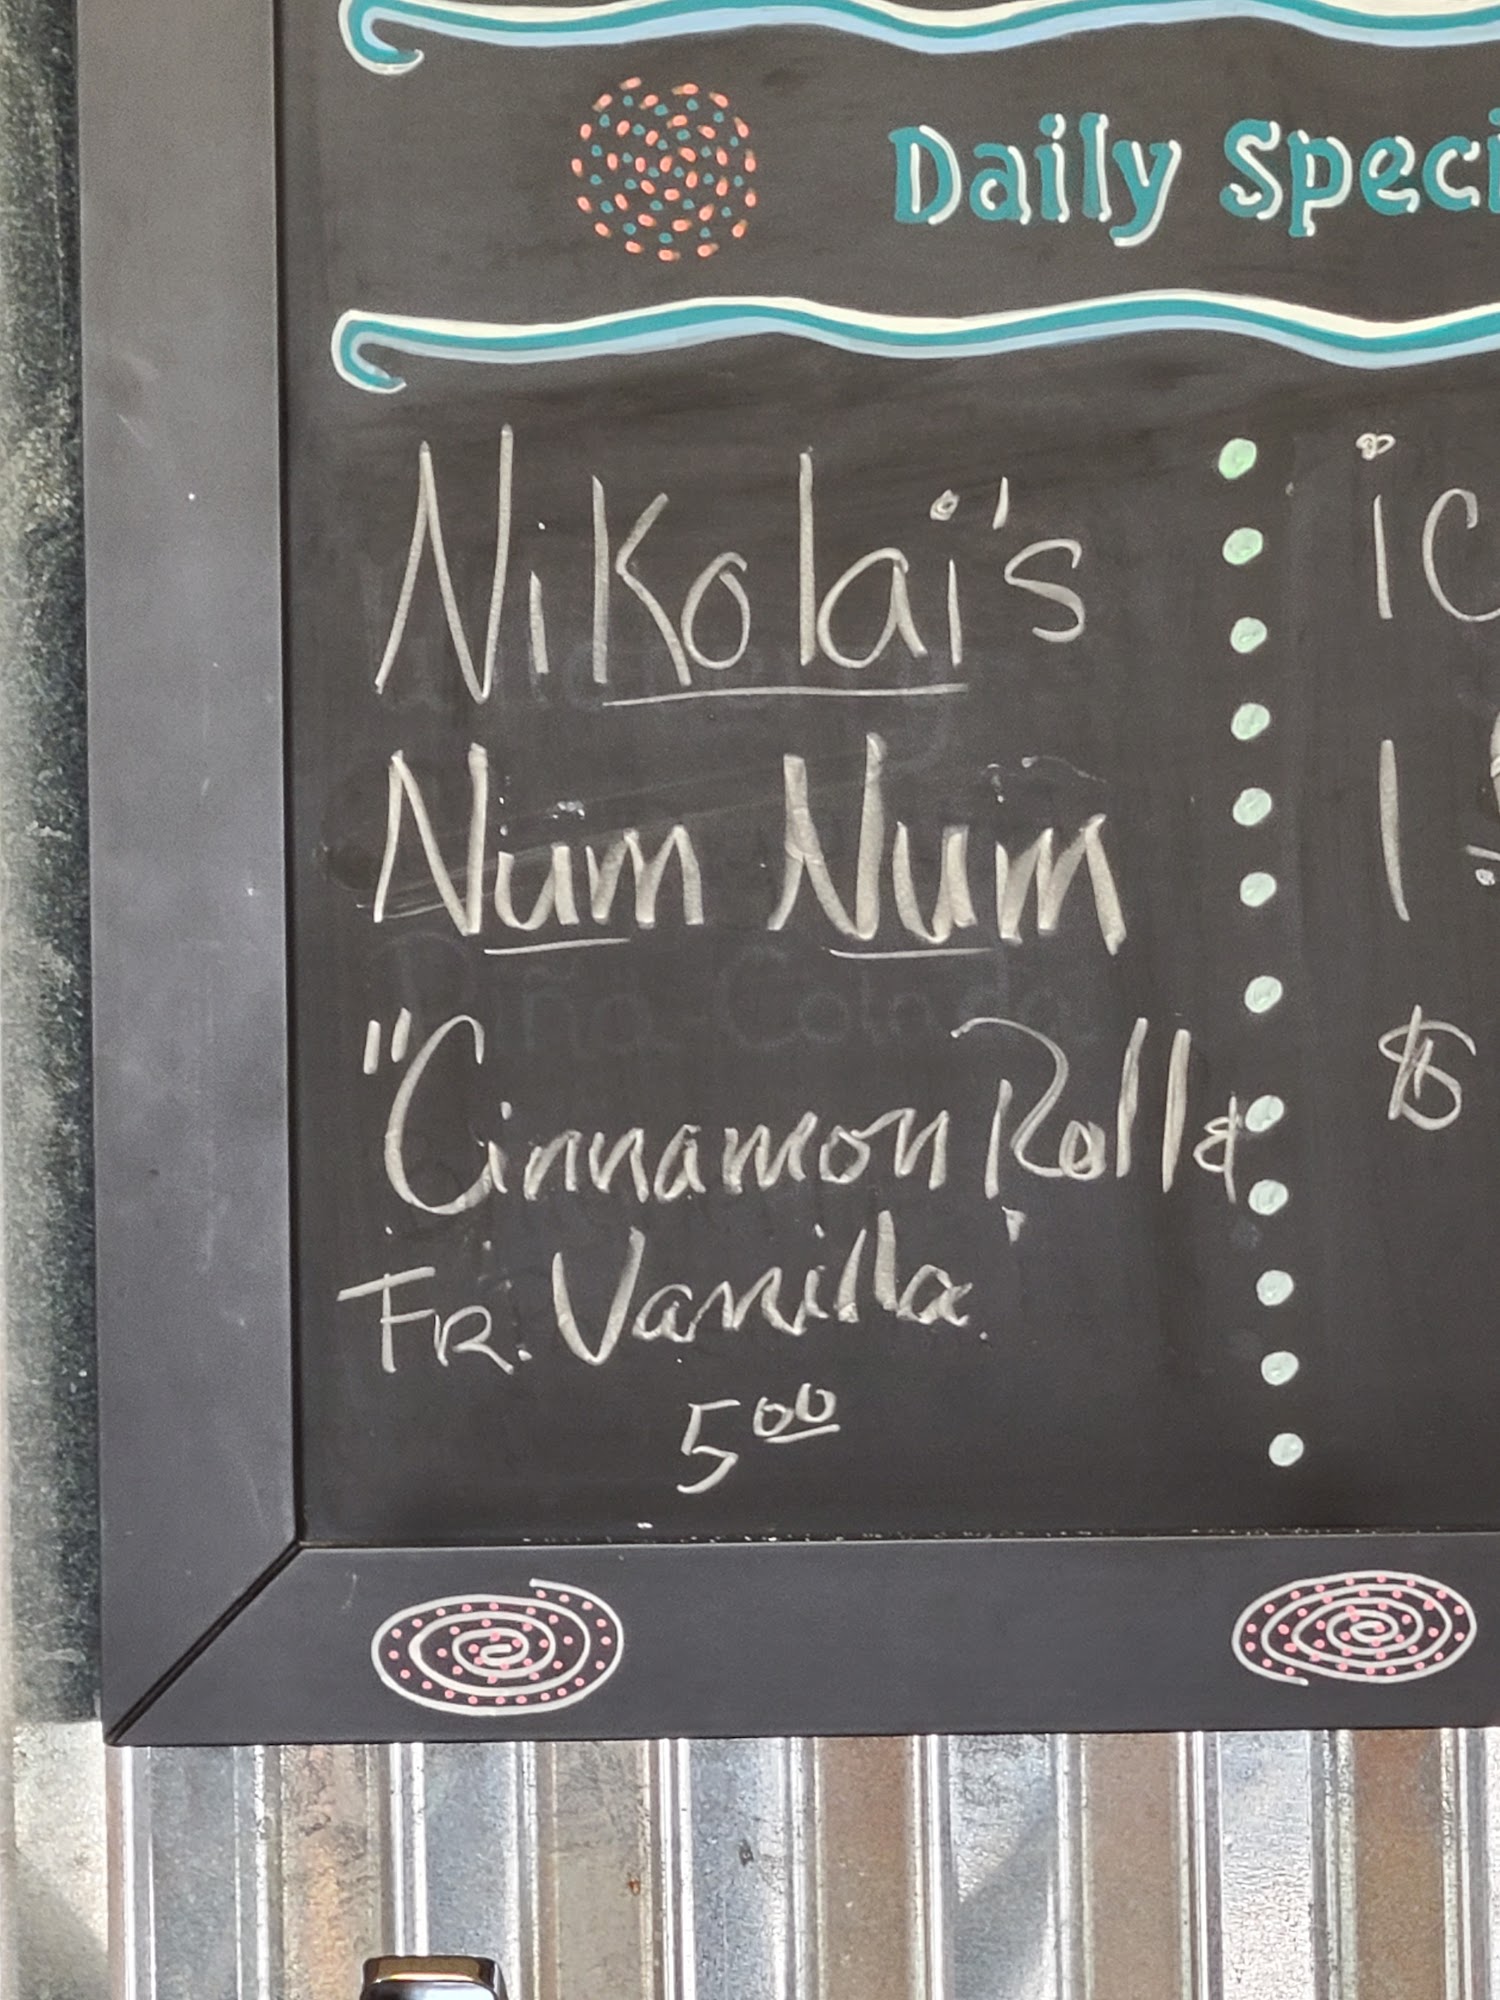 Daily Speci
Nikolai's
Num Num
"Cinnamon Roll &
FR. Vanilla"
5⁰⁰
ic
1
$